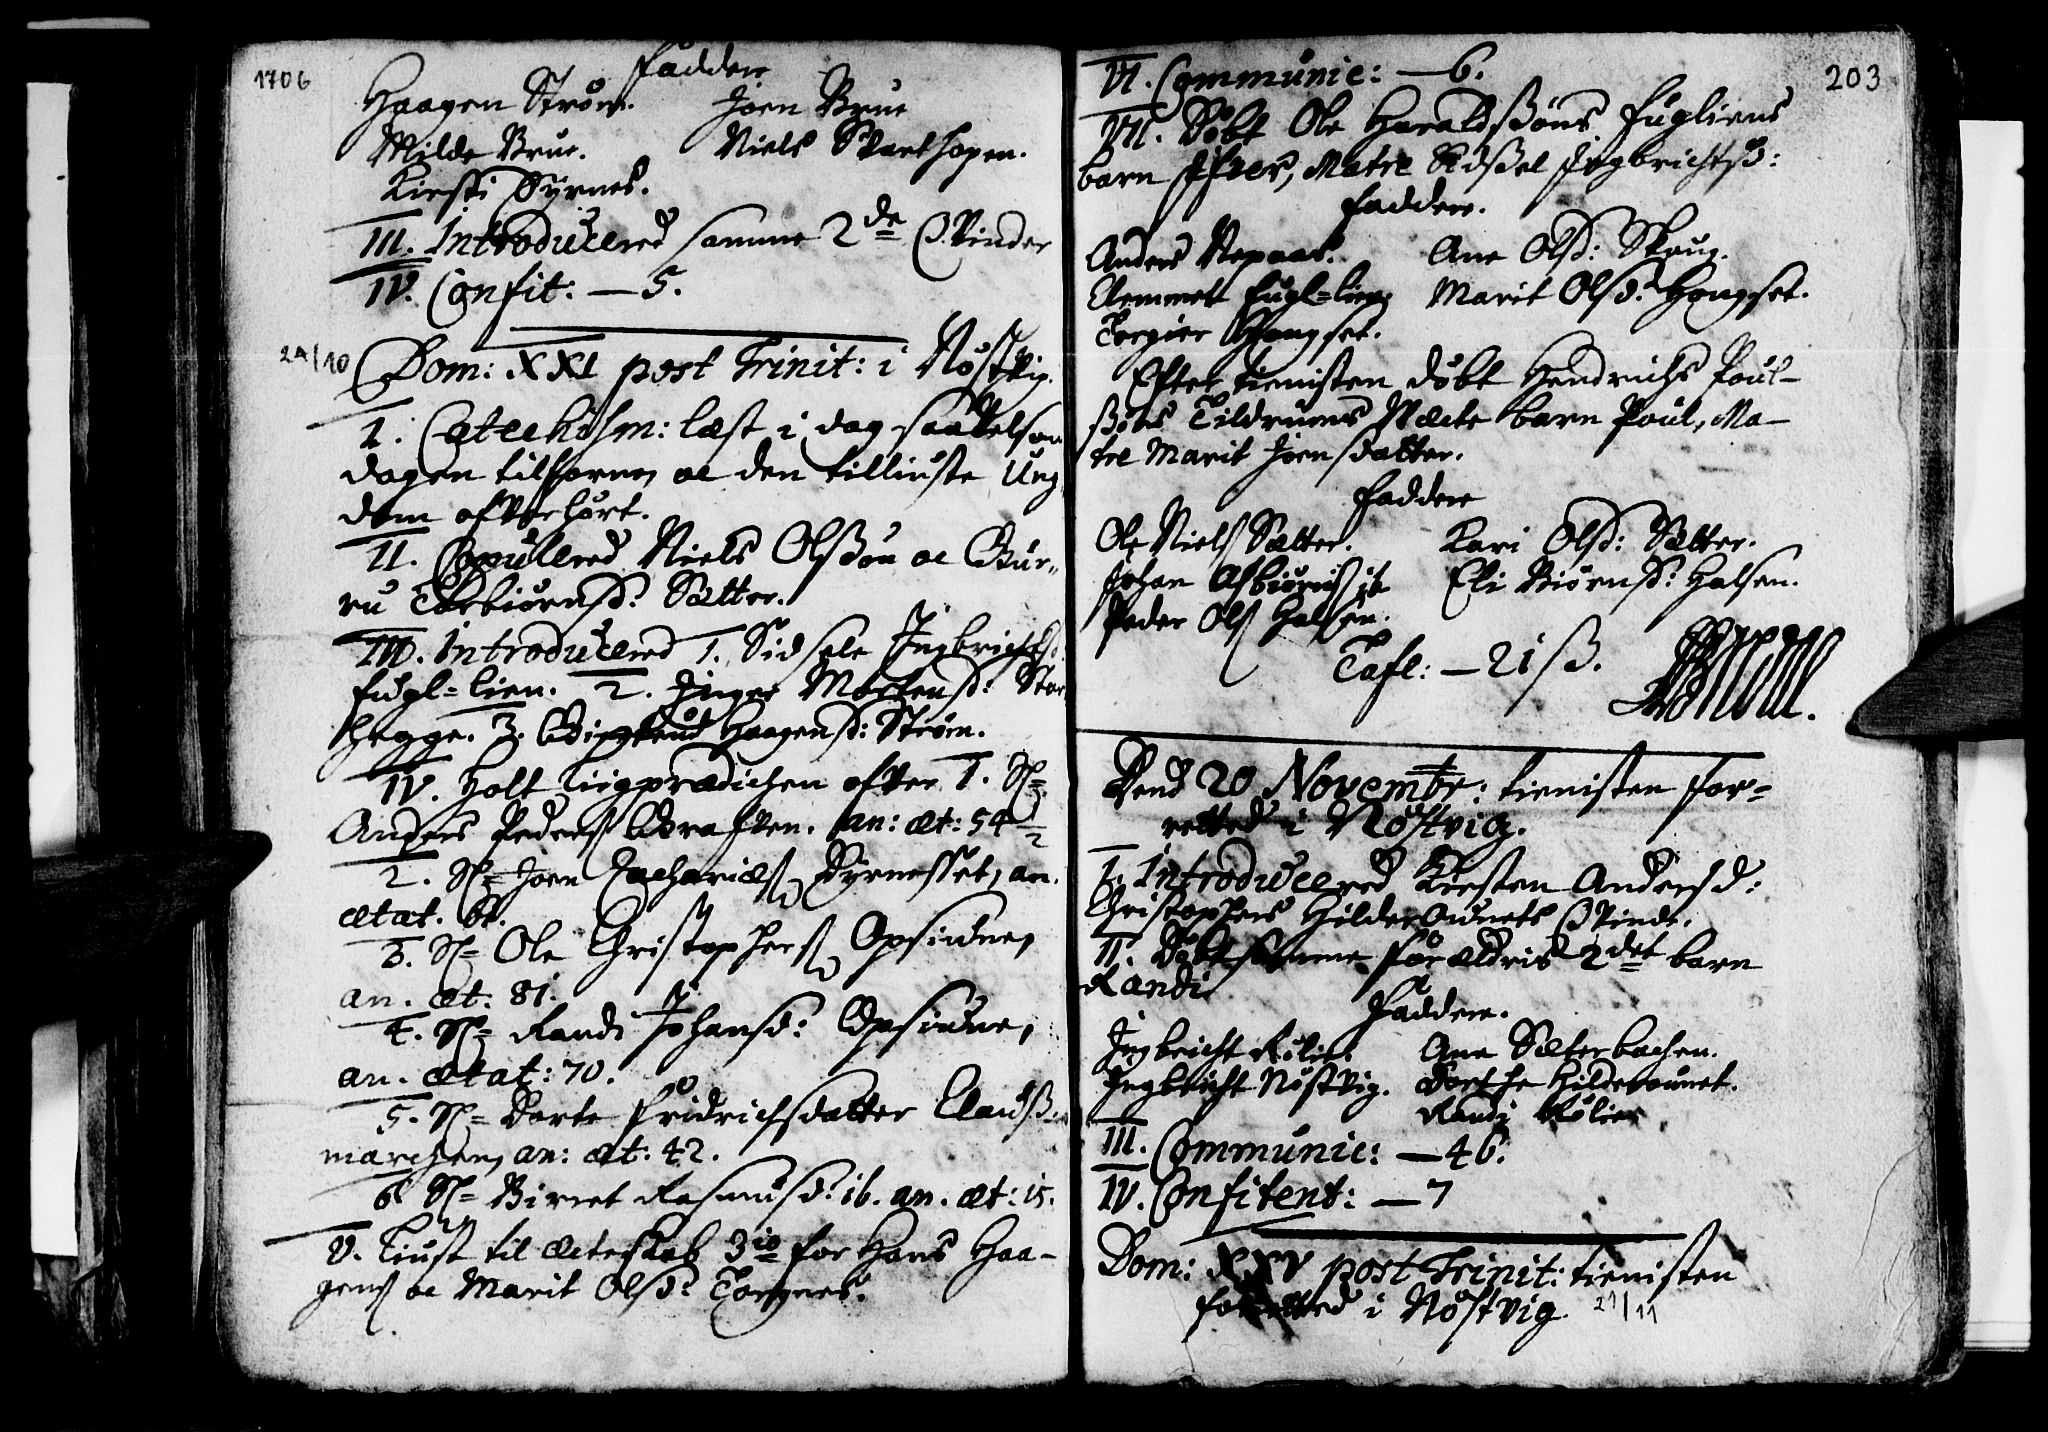 1706
Faddere
Haagen Strøm. Joen Brue
Milde Brue. Niels Svarthopen.
Kirsti Syrnes.
III. Introduceered samme 2de Qvinder
IV. Confit: — 5.
24/10 Dom: XXI post Trinit: i Nøstvig.
I. Catechism: læst i dag saavelson
dagen tilforne, oc den tilliuste Ung
dom ofverhørt.
II. Copuleered Niels Olssøn oc Gur-
ru Torbiørnsd: Sætter.
III. Introduceered 1. Sidsele Ingbrichtsd:
Fugl=lien. 2. Inger Mortensd: Stor
hegge. 3. Haagensd: Strøm.
IV. Holt Liigprædichen ofver 1. Sl=
Anders Peders an: æt: 54 ½
2. Sl= Joen Zachariæs Dyrnesset, an.
ætat. 61.
3. Sl= Ole Christophers Opsidne,
an. æt: 81.
4. Sl= Randi Johansd: Opsidne,
an. ætat: 70.
5. Sl= Dorte Fridrichsdatter
marchen, an: æt: 42.
6. Sl= Birret Rasmusd: ib. an. æt: 15.
V. Liust til ægteskab 3io for Hans Haa-
gens oc Marit Olsd: Torgnes.
203
VI. Communic: — 6.
VII. Døbt Ole Haraldssøns Fugliens
barn Ifver, Matre Sidssel Ingbrichtsd:
Faddere.
Anders Nepaas. Ane Olsd: Skrug.
Clemmett Fugl=lien. Marit Olsd: Hongset.
Torgier Hongset.
Efter tienisten døbt Hendrichs Poul-
søns Tildrums Ægte barn Poul, Ma-
tre Marit Joensdatter.
Faddere
Ole Niels Sætter. Kari Olsd: Sætter.
Johan Asbiørns ib Eli Biørnsd: Halsen.
Peder Ols Halsen.
Tafl: — 21 ß.
Dend 20 Novembr: tienisten for=
retted i Nøstvig.
I. Introduceered Kirsten Andersd:
Christophers Hilderøunets Qvinde.
II. Døbt samme forældris 2det barn
Randi.
Faddere.
Ingbricht Rølie. Ane Sæterbachen.
Ingbricht Nøstvig. Dorthe Hilderøunet.
Randi Rølien
III. Communic: — 46.
IV. Confitent: — 7
Dom: XXV post Trinit: tienisten
forretted i Nøstvig. 21/11